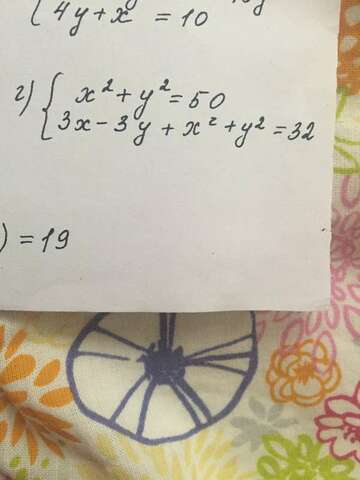 4y + x = 10
г) { x² + y² = 50
3x - 3y + x² + y² = 32
) = 19